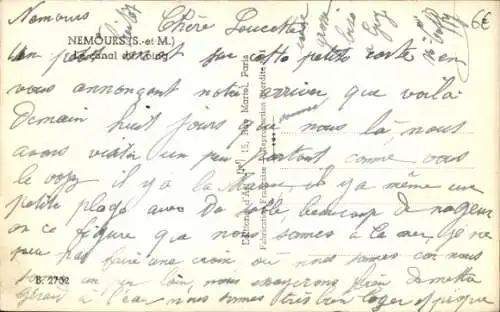 Nemours
Chère Lucette
6€
NEMOURS (S.-et M.)
Le Canal du Loing
Un petit mot sur cette petite carte en
vous annonçant notre arrivée que voilà
Demain huit jours que nous sommes là, nous
avons visité un peu partout comme vous
le voyez il y a la il y a même une
petite plage avec Du sable beaucoup de nageurs
on ce figure que nous sommes à la mer, je ne
peux pas faire une croix où nous sommes car nous
sommes un peu loin, nous essayerons bien de mettre
Gérard à l'eau nous sommes très bien loger et
B. 2752
Editions d'Art 15, Rue Martel, Paris
Fabrication Française - Reproduction Interdite